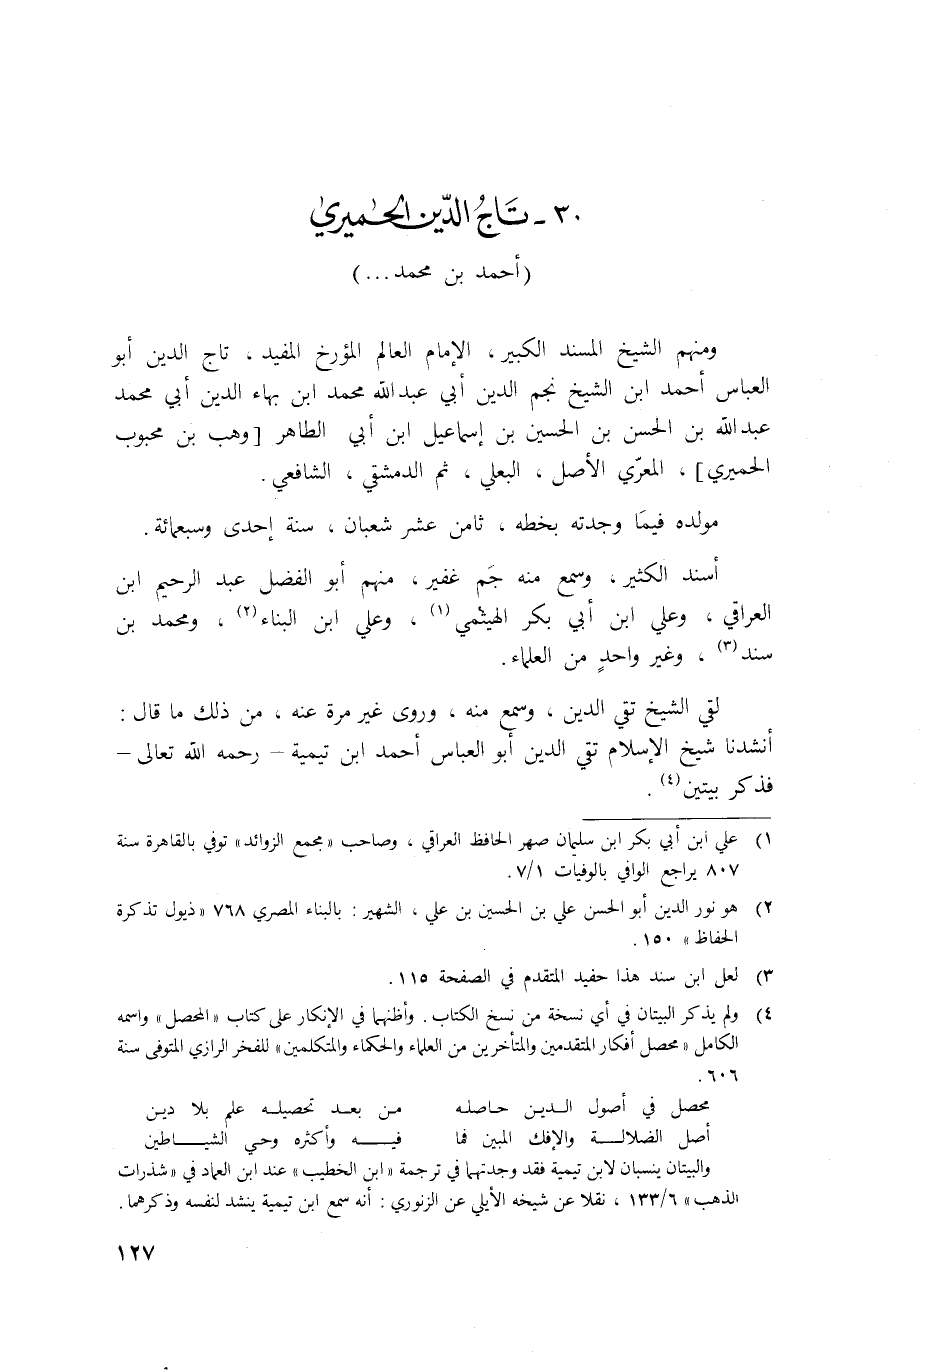 ٣٠ - تَاجُ الدِّين الحِميريٰ
(أحمد بن محمد ...)
ومنهم الشيخ المسند الكبير ، الإمام العالم المؤرخ المفيد ، تاج الدين أبو
العباس أحمد ابن الشيخ نجم الدين أبي عبدالله محمد ابن بهاء الدين أبي محمد
عبدالله بن الحسن بن الحسين بن إسماعيل ابن أبي الطاهر [وهب بن محبوب
الحميري] ، المعرّي الأصل ، البعلي ، ثم الدمشقي ، الشافعي .
مولده فيمَا وجدته بخطه ، ثامن عشر شعبان ، سنة إحدى وسبعمائة .
أسند الكثير ، وسمع منه جَم غفير ، منهم أبو الفضل عبد الرحيم ابن
العراقي ، وعلي ابن أبي بكر الهيثمي (١) ، وعلي ابن البناء (٢) ، ومحمد بن
سند (٣) ، وغير واحدٍ من العلماء .
لقي الشيخ تقي الدين ، وسمع منه ، وروى غير مرة عنه ، من ذلك ما قال :
أنشدنا شيخ الإسلام تقي الدين أبو العباس أحمد ابن تيمية – رحمه الله تعالى –
فذكر بيتين (٤) .
١) علي ابن أبي بكر ابن سليمان صهر الحافظ العراقي ، وصاحب «مجمع الزوائد» توفي بالقاهرة سنة
٨٠٧ يراجع الوافي بالوفيات ٧/١ .
٢) هو نور الدين أبو الحسن علي بن الحسين بن علي ، الشهير : بالبناء المصري ٧٦٨ «ذيول تذكرة
الحفاظ» ١٥٠ .
٣) لعل ابن سند هذا حفيد المتقدم في الصفحة ١١٥ .
٤) ولم يذكر البيتان في أي نسخة من نسخ الكتاب . وأظنهما في الإنكار على كتاب «المحصل» واسمه
الكامل «محصل أفكار المتقدمين والمتأخرين من العلماء والحكماء والمتكلمين» للفخر الرازي المتوفى سنة
٦٠٦ .
محصل في أصول الدين حاصله من بعد تحصيله علم بلا دين
أصل الضلالة والإفك المبين فما فيه وأكثره وحي الشياطين
والبيتان ينسبان لابن تيمية فقد وجدتهما في ترجمة «ابن الخطيب» عند ابن العماد في «شذرات
الذهب» ١٣٣/٦ ، نقلا عن شيخه الأيلي عن الزنوري : أنه سمع ابن تيمية ينشد لنفسه وذكرهما .
١٢٧